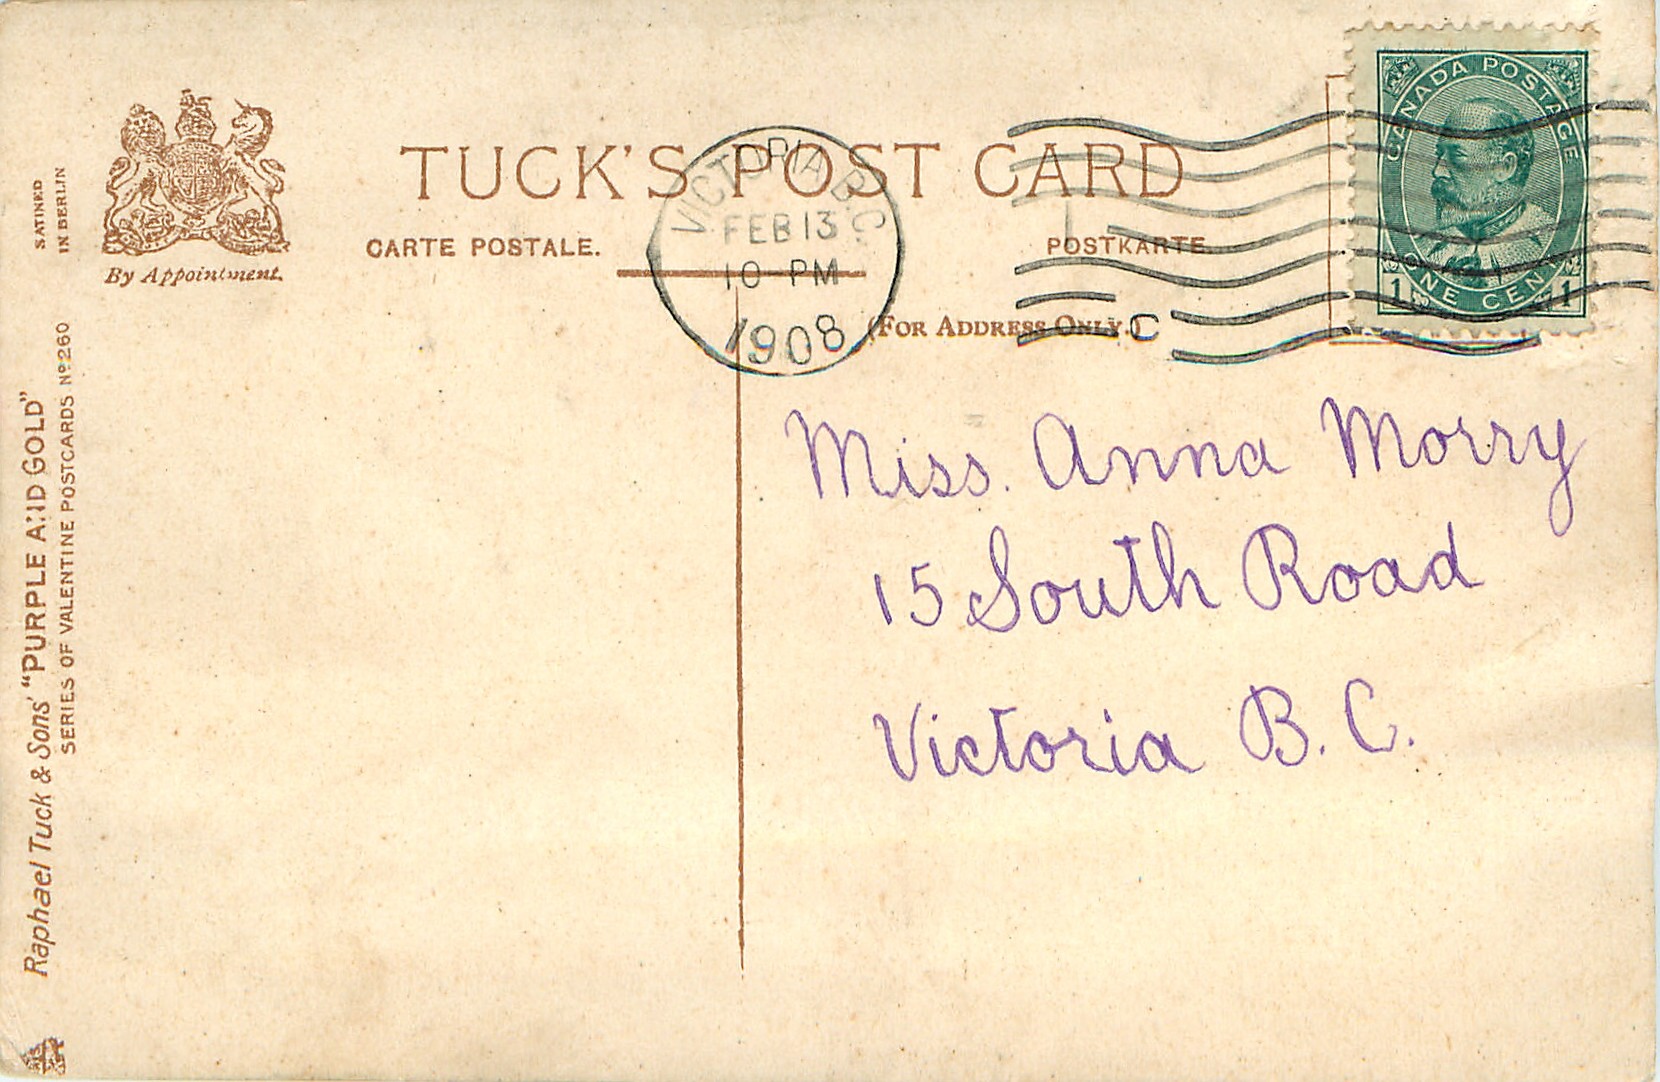 TUCK'S POST CARD
CARTE POSTALE.
POSTKARTE.
(FOR ADDRESS ONLY.)
By Appointment.
SATINED
IN BERLIN
Raphael Tuck & Sons' "PURPLE AND GOLD"
SERIES OF VALENTINE POSTCARDS No 260
VICTORIA B.C.
FEB 13
10 PM
1908
C
CANADA POSTAGE
ONE CENT
1 1
Miss. Anna Morry
15 South Road
Victoria B. C.